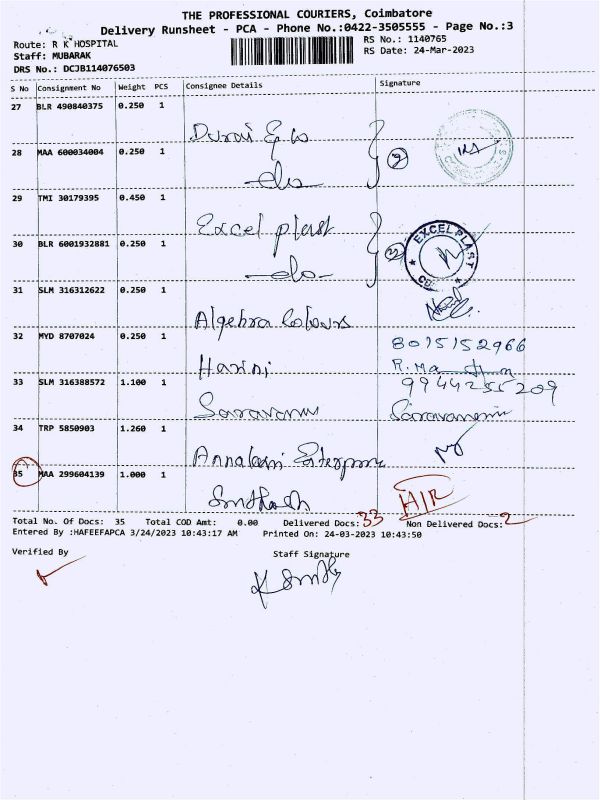 THE PROFESSIONAL COURIERS, Coimbatore
Delivery Runsheet - PCA - Phone No.:0422-3505555 - Page No.:3
Route: R K HOSPITAL
RS No.: 1140765
Staff: MUBARAK
RS Date: 24-Mar-2023
DRS No.: DCJB114076503
S No Consignment No Weight PCS Consignee Details Signature
27 BLR 490840375 0.250 1
Durai & Co
28 MAA 600034004 0.250 1
-do-
2
29 TMI 30179395 0.450 1
Excel plast
30 BLR 6001932881 0.250 1
-do-
2
EXCEL PLAST
31 SLM 316312622 0.250 1
Algebra Colours
32 MYD 8707024 0.250 1
8015152966
Harini
33 SLM 316388572 1.100 1
9944255209
Saravanan
34 TRP 5850903 1.260 1
35 MAA 299604139 1.000 1
Total No. Of Docs: 35 Total COD Amt: 0.00 Delivered Docs: 33 Non Delivered Docs: 2
Entered By :HAFEEFAPCA 3/24/2023 10:43:17 AM Printed On: 24-03-2023 10:43:50
Verified By
Staff Signature